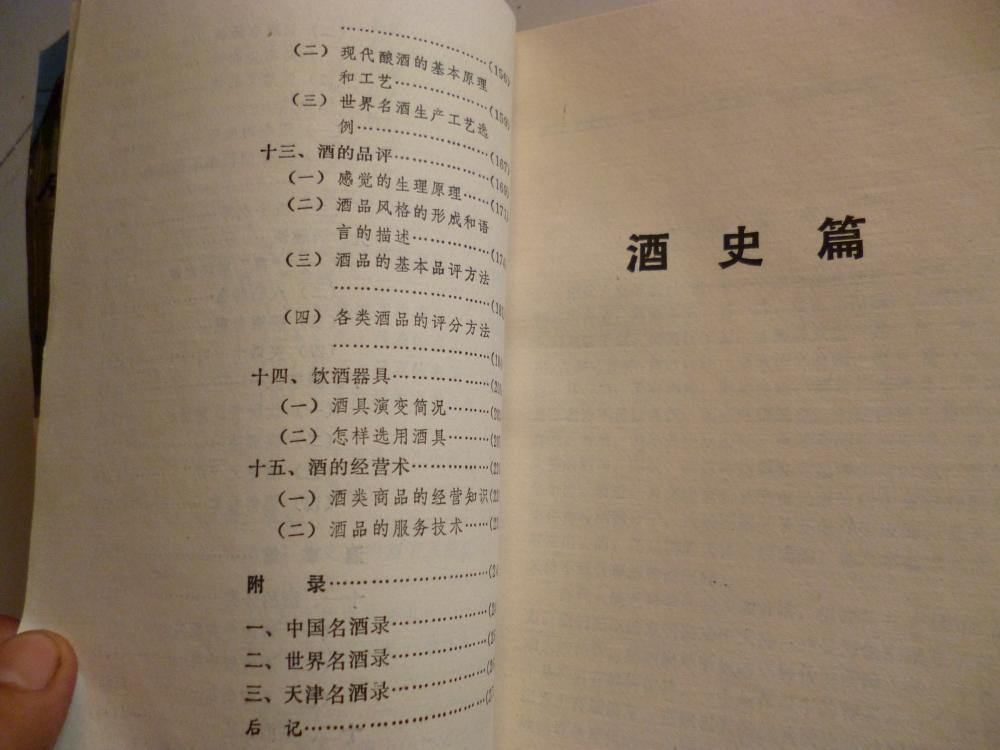 (二) 现代酿酒的基本原理
和工艺……………(156)
(三) 世界名酒生产工艺选
例……………………(159)
十三、酒的品评……………(167)
(一) 感觉的生理原理……(169)
(二) 酒品风格的形成和语
言的描述……………(171)
(三) 酒品的基本品评方法
……………………(174)
(四) 各类酒品的评分方法
……………………
十四、饮酒器具……………
(一) 酒具演变简况………
(二) 怎样选用酒具………
十五、酒的经营术…………
(一) 酒类商品的经营知识
(二) 酒品的服务技术……
附 录……………………
一、中国名酒录……………
二、世界名酒录……………
三、天津名酒录……………
后 记……………………
酒 史 篇